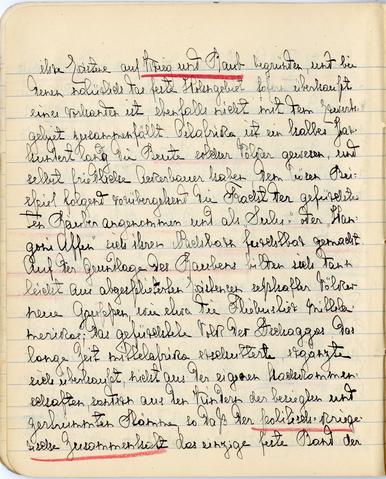 ihre Existenz auf Krieg und Raub begründen, und bei
denen natürlich das feste Wohngebiet sofern überhaupt
eines vorhanden ist ebenfalls nicht mit dem Erwerbs
gebiet zusammenfällt Ostafrika ist ein halbes Jahr
hundert lang die Beute solcher Völker gewesen, und
selbst friedliche Ackerbauer haben dem üblen Bei-
spiel folgend vorübergehend die Tracht der gefürchte-
ten Räuber angenommen und als "Sulu" oder "Wan
goni Affen" sich ihren Nachbarn furchtbar gemacht
Auf der Grundlage des Raubens bilden sich dann
leicht aus abgesplitterten Existenzen erschaffter Völker
neue Gruppen, wie etwa die Flibustier Mittela-
merikas. Das gefürchtete Volk der Dschaggas das
lange Zeit mittelafrika erschütterte ergänzte
sich überhaupt, nicht aus der eigenen Nachkommen-
schaften sondern aus den Kindern der besiegten und
zertrümmerten Stämme, so daß der politisch-kriege-
rische Zusammenhalt das einzige feste Band der